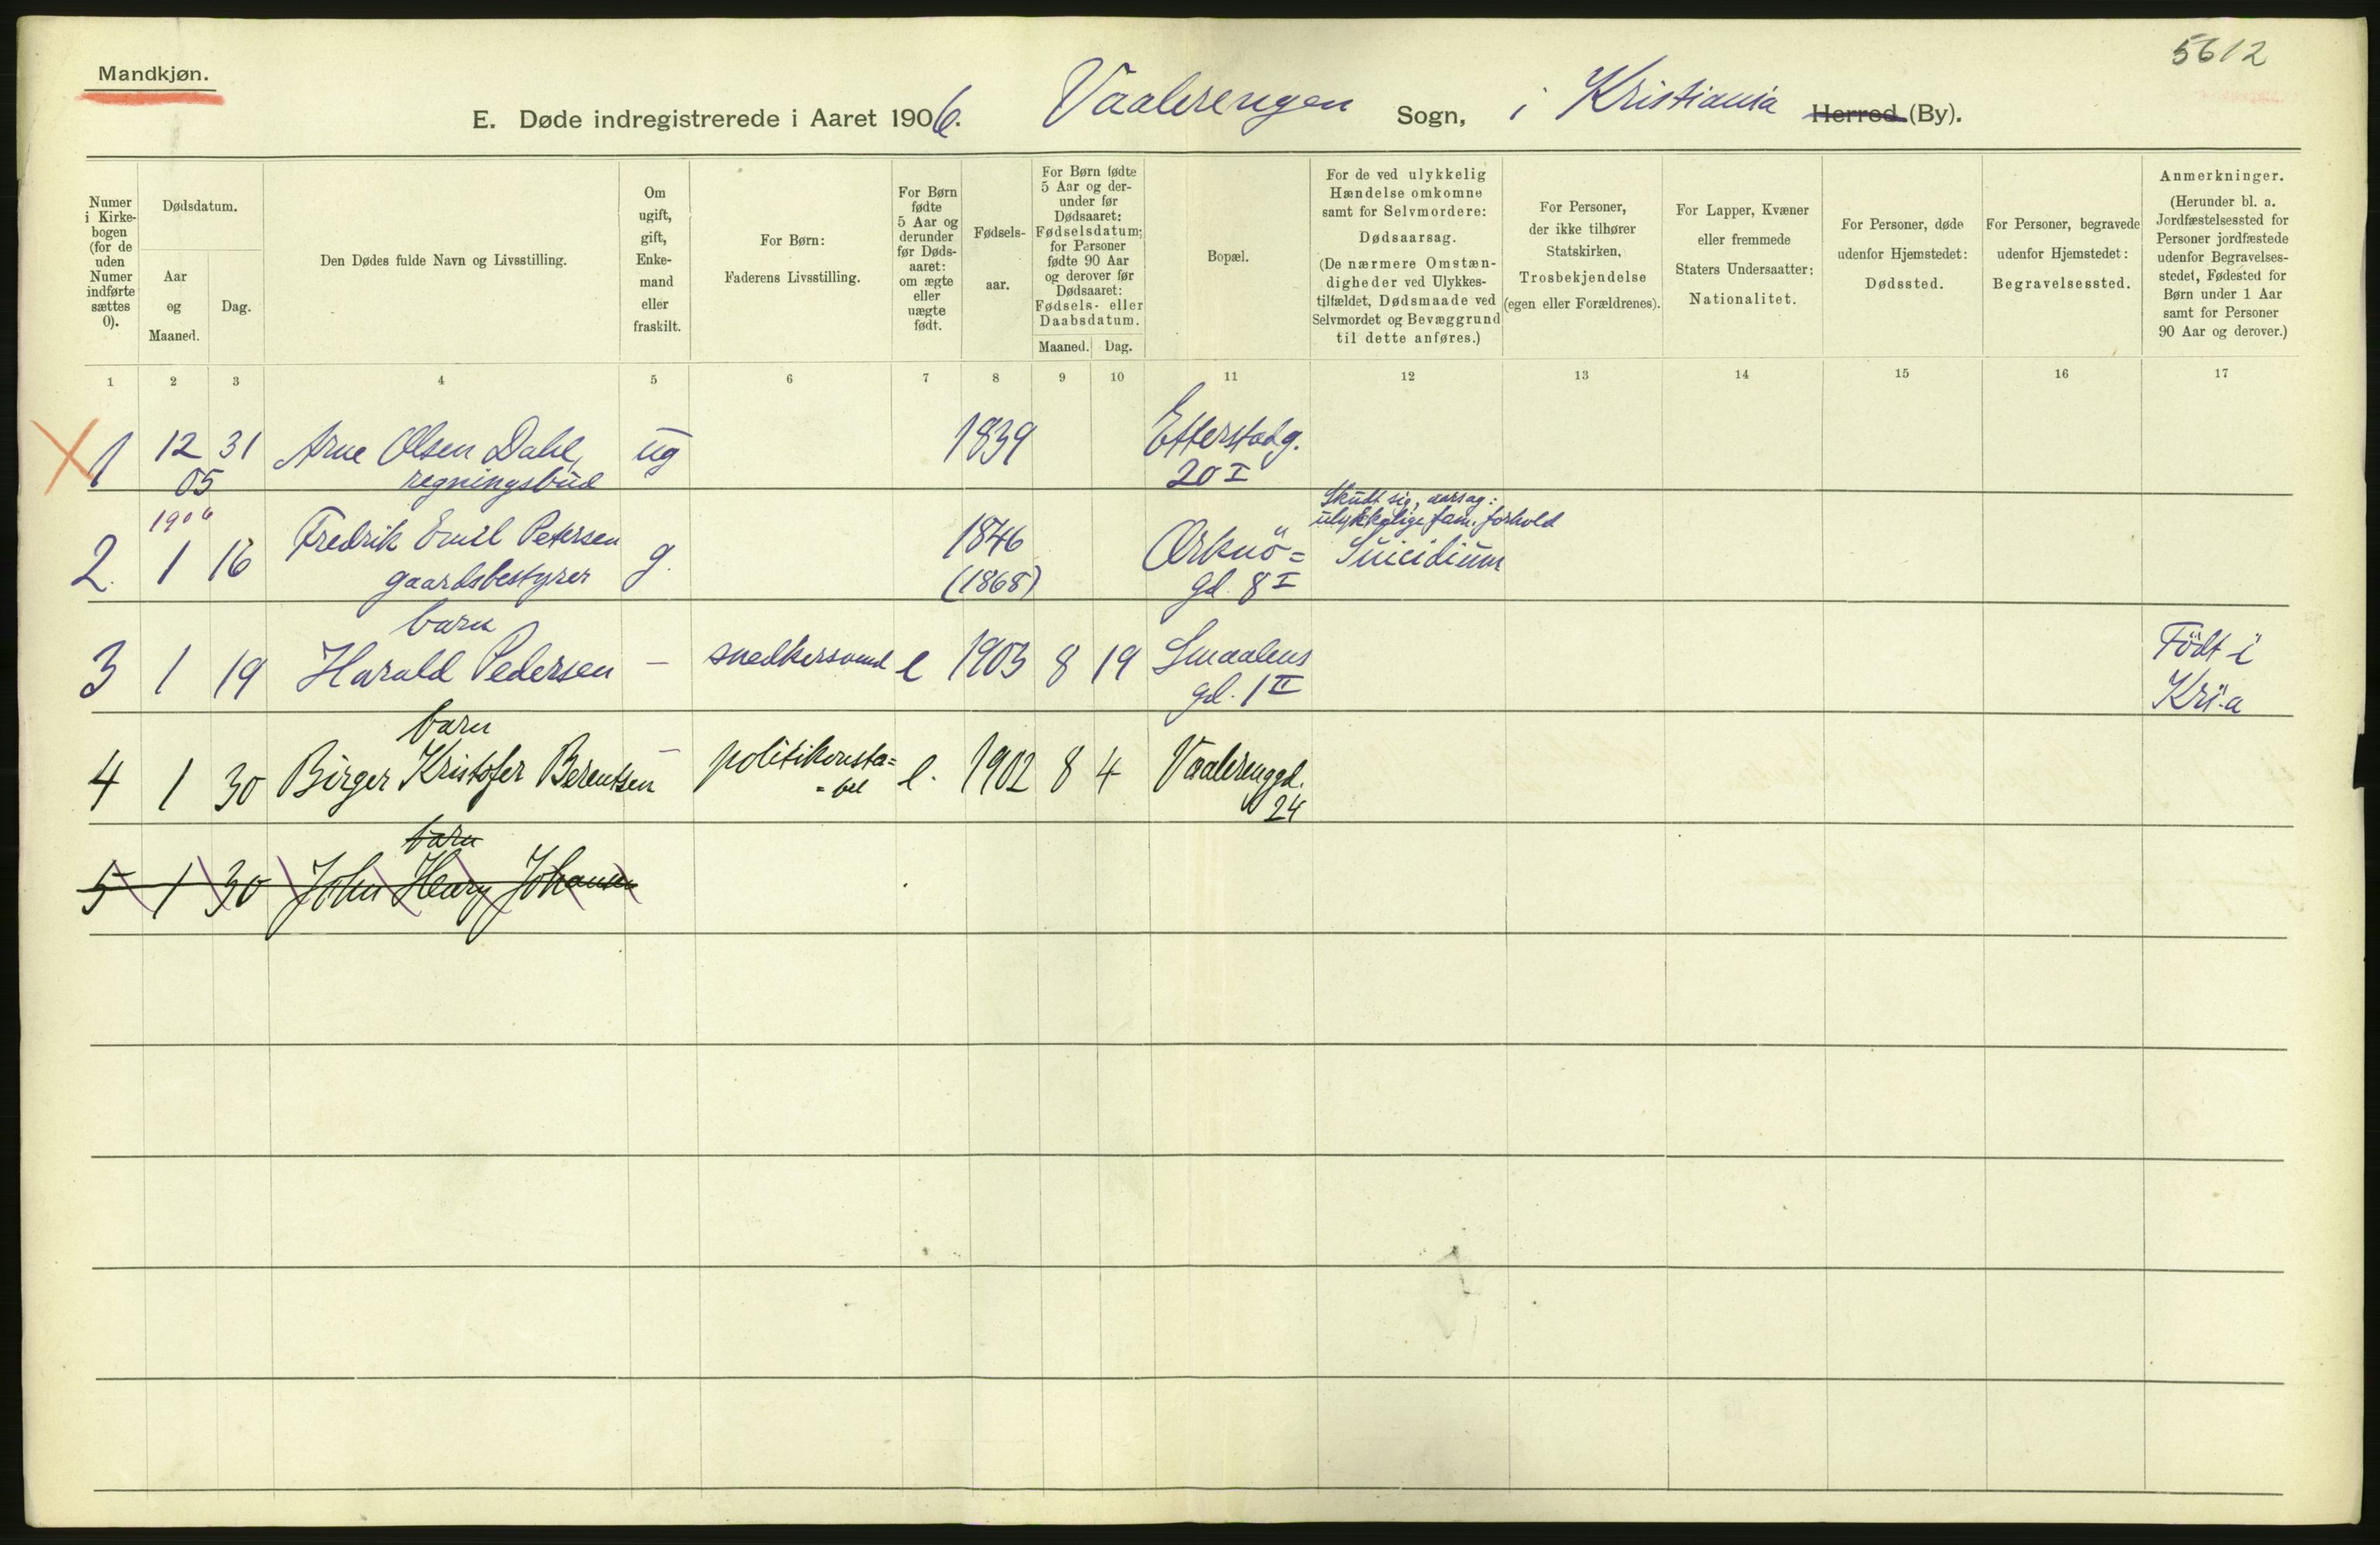 5612
Mandkjøn.
E. Døde indregistrerede i Aaret 1906. Vaalerengen Sogn, i Kristiania Herred (By).
Numer i Kirke-bogen (for de uden Numer indførte sættes 0).
Dødsdatum.
Aar og Maaned.
Dag.
Den Dødes fulde Navn og Livsstilling.
Om ugift, gift, Enke-mand eller fraskilt.
For Børn: Faderens Livsstilling.
For Børn fødte 5 Aar og derunder før Døds-aaret: om ægte eller uægte født.
Fødsels-aar.
For Børn fødte 5 Aar og der-under før Dødsaaret: Fødselsdatum; for Personer fødte 90 Aar og derover før Dødsaaret: Fødsels- eller Daabsdatum.
Maaned. Dag.
Bopæl.
For de ved ulykkelig Hændelse omkomne samt for Selvmordere: Dødsaarsag. (De nærmere Omstæn-digheder ved Ulykkes-tilfældet, Dødsmaade ved Selvmordet og Bevæggrund til dette anføres.)
For Personer, der ikke tilhører Statskirken, Trosbekjendelse (egen eller Forældrenes).
For Lapper, Kvæner eller fremmede Staters Undersaatter: Nationalitet.
For Personer, døde udenfor Hjemstedet: Dødssted.
For Personer, begravede udenfor Hjemstedet: Begravelsessted.
Anmerkninger. (Herunder bl. a. Jordfæstelsessted for Personer jordfæstede udenfor Begravelses-stedet, Fødested for Børn under 1 Aar samt for Personer 90 Aar og derover.)
1 2 3 4 5 6 7 8 9 10 11 12 13 14 15 16 17
1 12 31 Arne Olsen Dahl, ug 1839 Etterstadg.
05 regningsbud 20 I
1906 Skudt sig, aarsag:
ulykkelige fam. forhold
2. 1 16 Fredrik Emil Petersen g. 1846 Ærknö= Suicidium
gaardsbestyrer (1868) gd. 8 I
barn
3 1 19 Harald Pedersen — snedkersvend e 1903 8 19 Smaalens Födt i
gd. 1 II Kri.a
barn
4 1 30 Birger Kristofer Berentsen — politikonsta= e. 1902 8 4 Vaalerenggd.
=bel 24
barn
5 1 30 John Henry Johansen